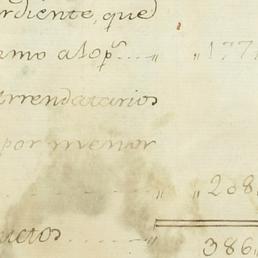 rdiente, que
amo a 10 p.º... „ „ 177
Arrendatarios
por menor
„ „ 208
uctos... „ 386